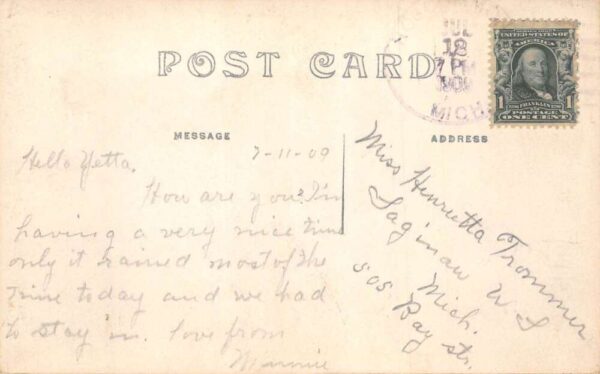 POST CARD
JUL
12
7 PM
1909
MICH
UNITED STATES OF
AMERICA
1 FRANKLIN 1
POSTAGE
ONE CENT
MESSAGE
ADDRESS
Hello Yetta.
7-11-09
How are you? I'm
having a very nice time
only it rained most of the
time today and we had
to stay in. love from
Minnie
Miss Henrietta Trommer
Saginaw W S
Mich.
505 Bay str.